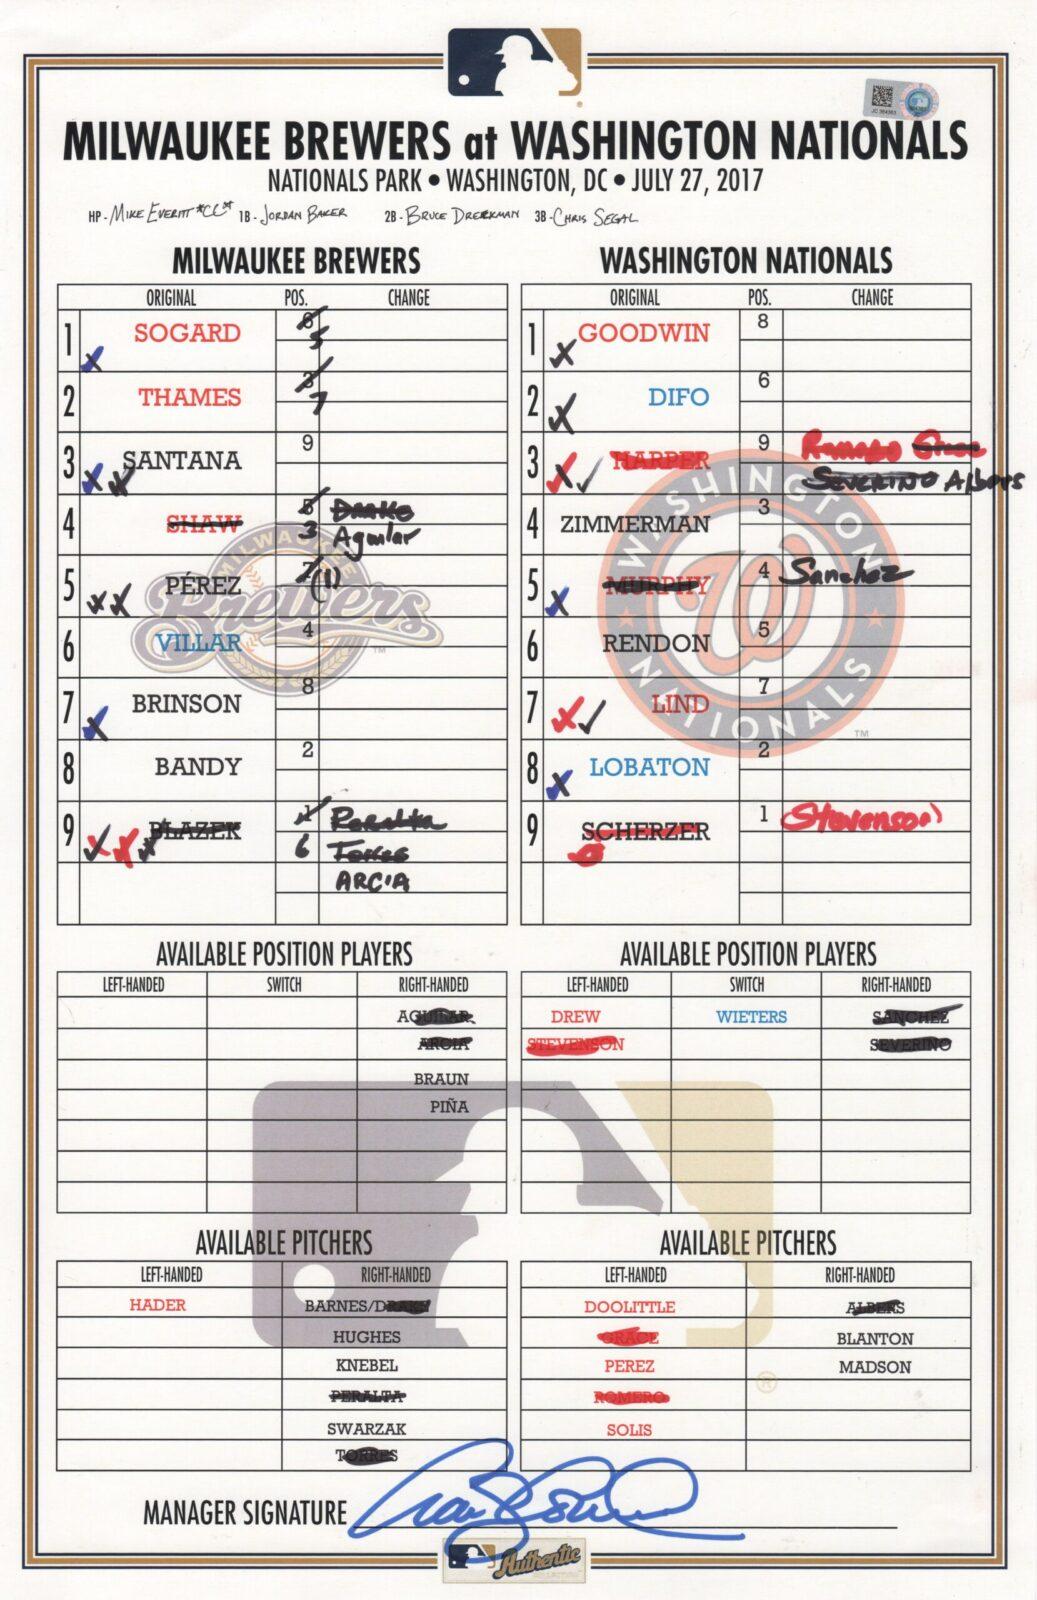 JC 364363
MILWAUKEE BREWERS at WASHINGTON NATIONALS
NATIONALS PARK • WASHINGTON, DC • JULY 27, 2017
HP - MIKE EVERITT *CC* 1B - JORDAN BAKER 2B - BRUCE DRECKMAN 3B - CHRIS SEGAL
MILWAUKEE BREWERS
ORIGINAL POS. CHANGE
1 SOGARD 6
5
2 THAMES 3
7
3 SANTANA 9
4 SHAW 5 Drake
3 Aguilar
5 PÉREZ 7 (1)
6 VILLAR 4
7 BRINSON 8
8 BANDY 2
9 BLAZEK 1 Peralta
6 Torres
ARCIA
MILWAUKEE
Brewers
TM
WASHINGTON NATIONALS
ORIGINAL POS. CHANGE
1 GOODWIN 8
2 DIFO 6
3 HARPER 9 Romero Grace
SEVERINO Albers
4 ZIMMERMAN 3
5 MURPHY 4 Sanchez
6 RENDON 5
7 LIND 7
8 LOBATON 2
9 SCHERZER 1 Stevenson
WASHINGTON
W
NATIONALS
TM
AVAILABLE POSITION PLAYERS
LEFT-HANDED SWITCH RIGHT-HANDED
AGUILAR
ARCIA
BRAUN
PIÑA
AVAILABLE POSITION PLAYERS
LEFT-HANDED SWITCH RIGHT-HANDED
DREW WIETERS SANCHEZ
STEVENSON SEVERINO
AVAILABLE PITCHERS
LEFT-HANDED RIGHT-HANDED
HADER BARNES/DRAKE
HUGHES
KNEBEL
PERALTA
SWARZAK
TORRES
AVAILABLE PITCHERS
LEFT-HANDED RIGHT-HANDED
DOOLITTLE ALBERS
GRACE BLANTON
PEREZ MADSON
ROMERO
SOLIS
®
MANAGER SIGNATURE
Authentic
COLLECTION